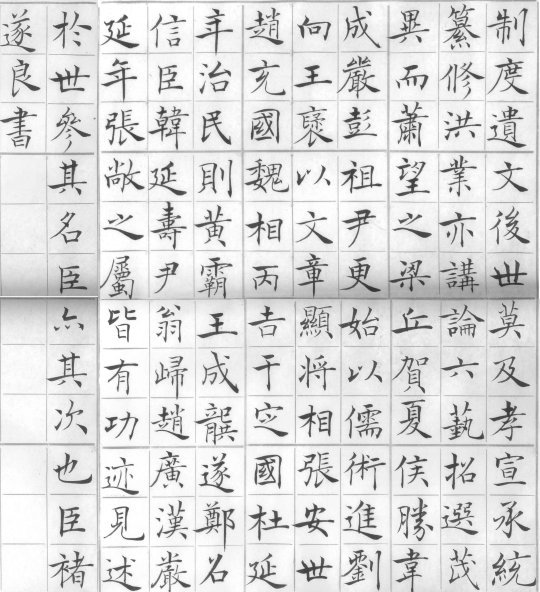 制度遺文後世莫及孝宣承統
纂修洪業亦講論六藝招選茂
異而蕭望之梁丘賀夏侯勝韋
成嚴彭祖尹更始以儒術進劉
向王襃以文章顯將相張安世
趙充國魏相丙吉于定國杜延
年治民則黃霸王成龔遂鄭名
信臣韓延壽尹翁歸趙廣漢嚴
延年張敞之屬皆有功迹見述
於世參其名臣亦其次也臣褚
遂良書